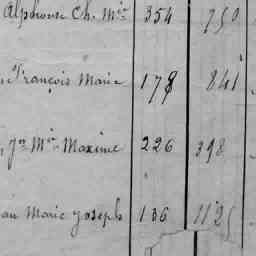 Alphonse Ch. Mie 354 750
François Marie 178 841
Jn Mie Maxime 226 398
au Marie Joseph 136 1125